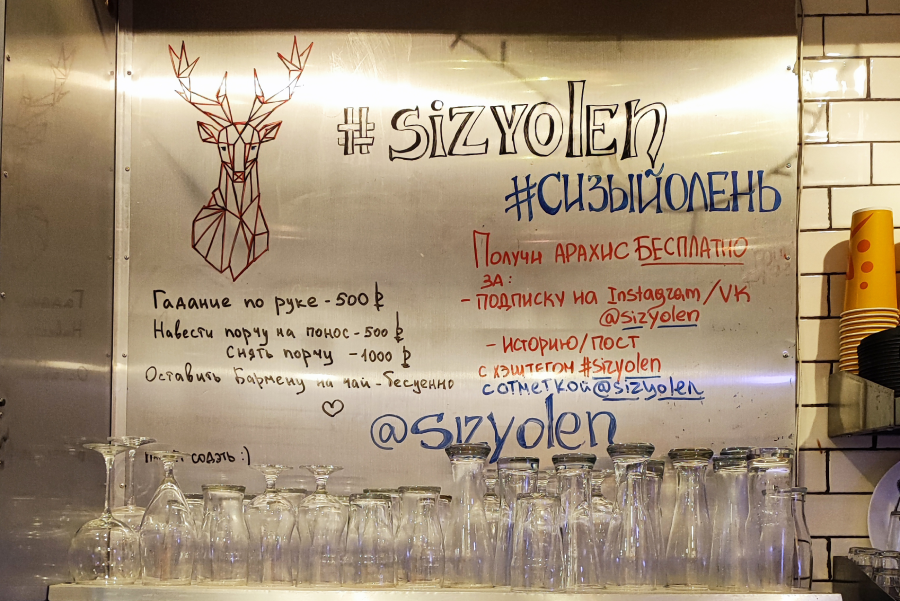 #SIZYOLEN
#СИЗЫЙОЛЕНЬ
Получи АРАХИС БЕСПЛАТНО
ЗА:
- ПОДПИСКУ НА Instagram/VK
@sizyolen
- ИСТОРИЮ/ПОСТ
С ХЭШТЕГОМ #sizyolen
С ОТМЕТКОЙ @sizyolen
@sizyolen
Гадание по руке - 500 ₽
Навести порчу на понос - 500 ₽
Снять порчу - 1000 ₽
Оставить Бармену на чай - бесценно
содэть :)